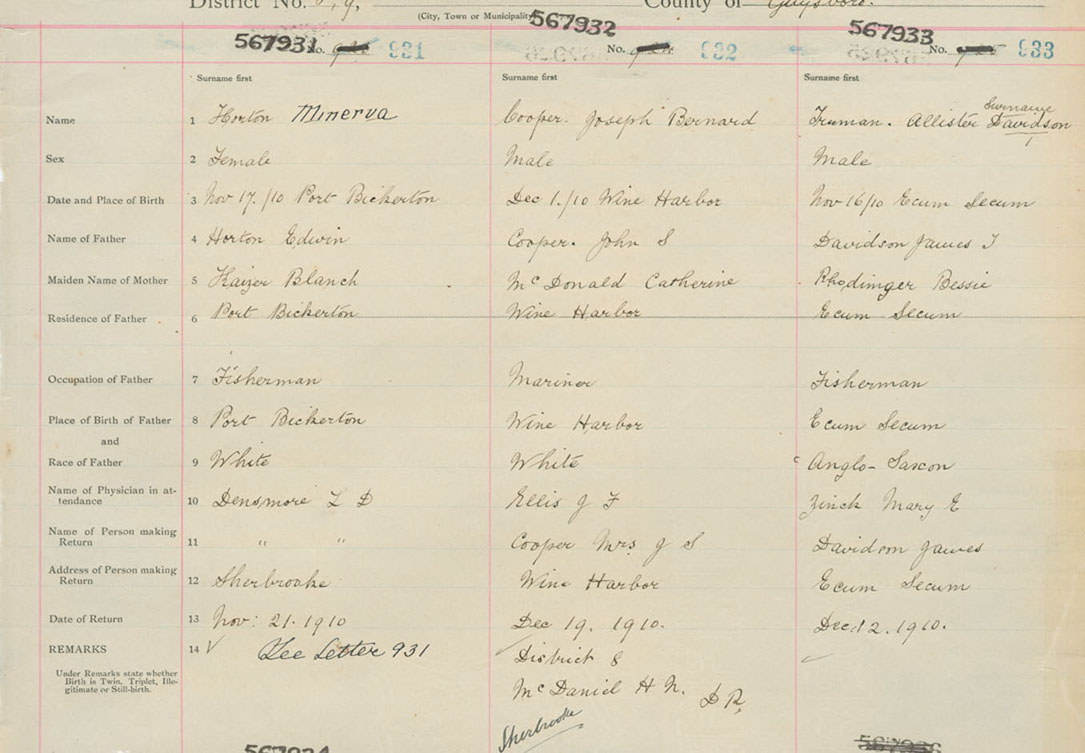 District No. 8, 9, County of Guysboro.
(City, Town or Municipality)
567931 No. 931 567932 No. 932 567933 No. 933
Surname first Surname first Surname first
Surname
Name 1 Horton Minerva Cooper. Joseph Bernard Truman. Allister Davidson
Sex 2 Female Male Male
Date and Place of Birth 3 Nov 17./10 Port Bickerton Dec 1./10 Wine Harbor Nov 16/10 Ecum Secum
Name of Father 4 Horton Edwin Cooper. John S Davidson James T
Maiden Name of Mother 5 Kaizer Blanch McDonald Catherine Rhodinger Bessie
Residence of Father 6 Port Bickerton Wine Harbor Ecum Secum
Occupation of Father 7 Fisherman Mariner Fisherman
Place of Birth of Father 8 Port Bickerton Wine Harbor Ecum Secum
and
Race of Father 9 White White Anglo-Saxon
Name of Physician in at-
tendance 10 Densmore L D Ellis J F Zinck Mary E
Name of Person making
Return 11 " " Cooper Mrs J S Davidson James
Address of Person making
Return 12 Sherbrooke Wine Harbor Ecum Secum
Date of Return 13 Nov: 21. 1910 Dec 19. 1910. Dec. 12. 1910.
REMARKS 14 See Letter 931 District 8
Under Remarks state whether
Birth is Twin, Triplet, Ille-
gitimate or Still-birth.
McDaniel H N. D R,
Sherbrooke
567934